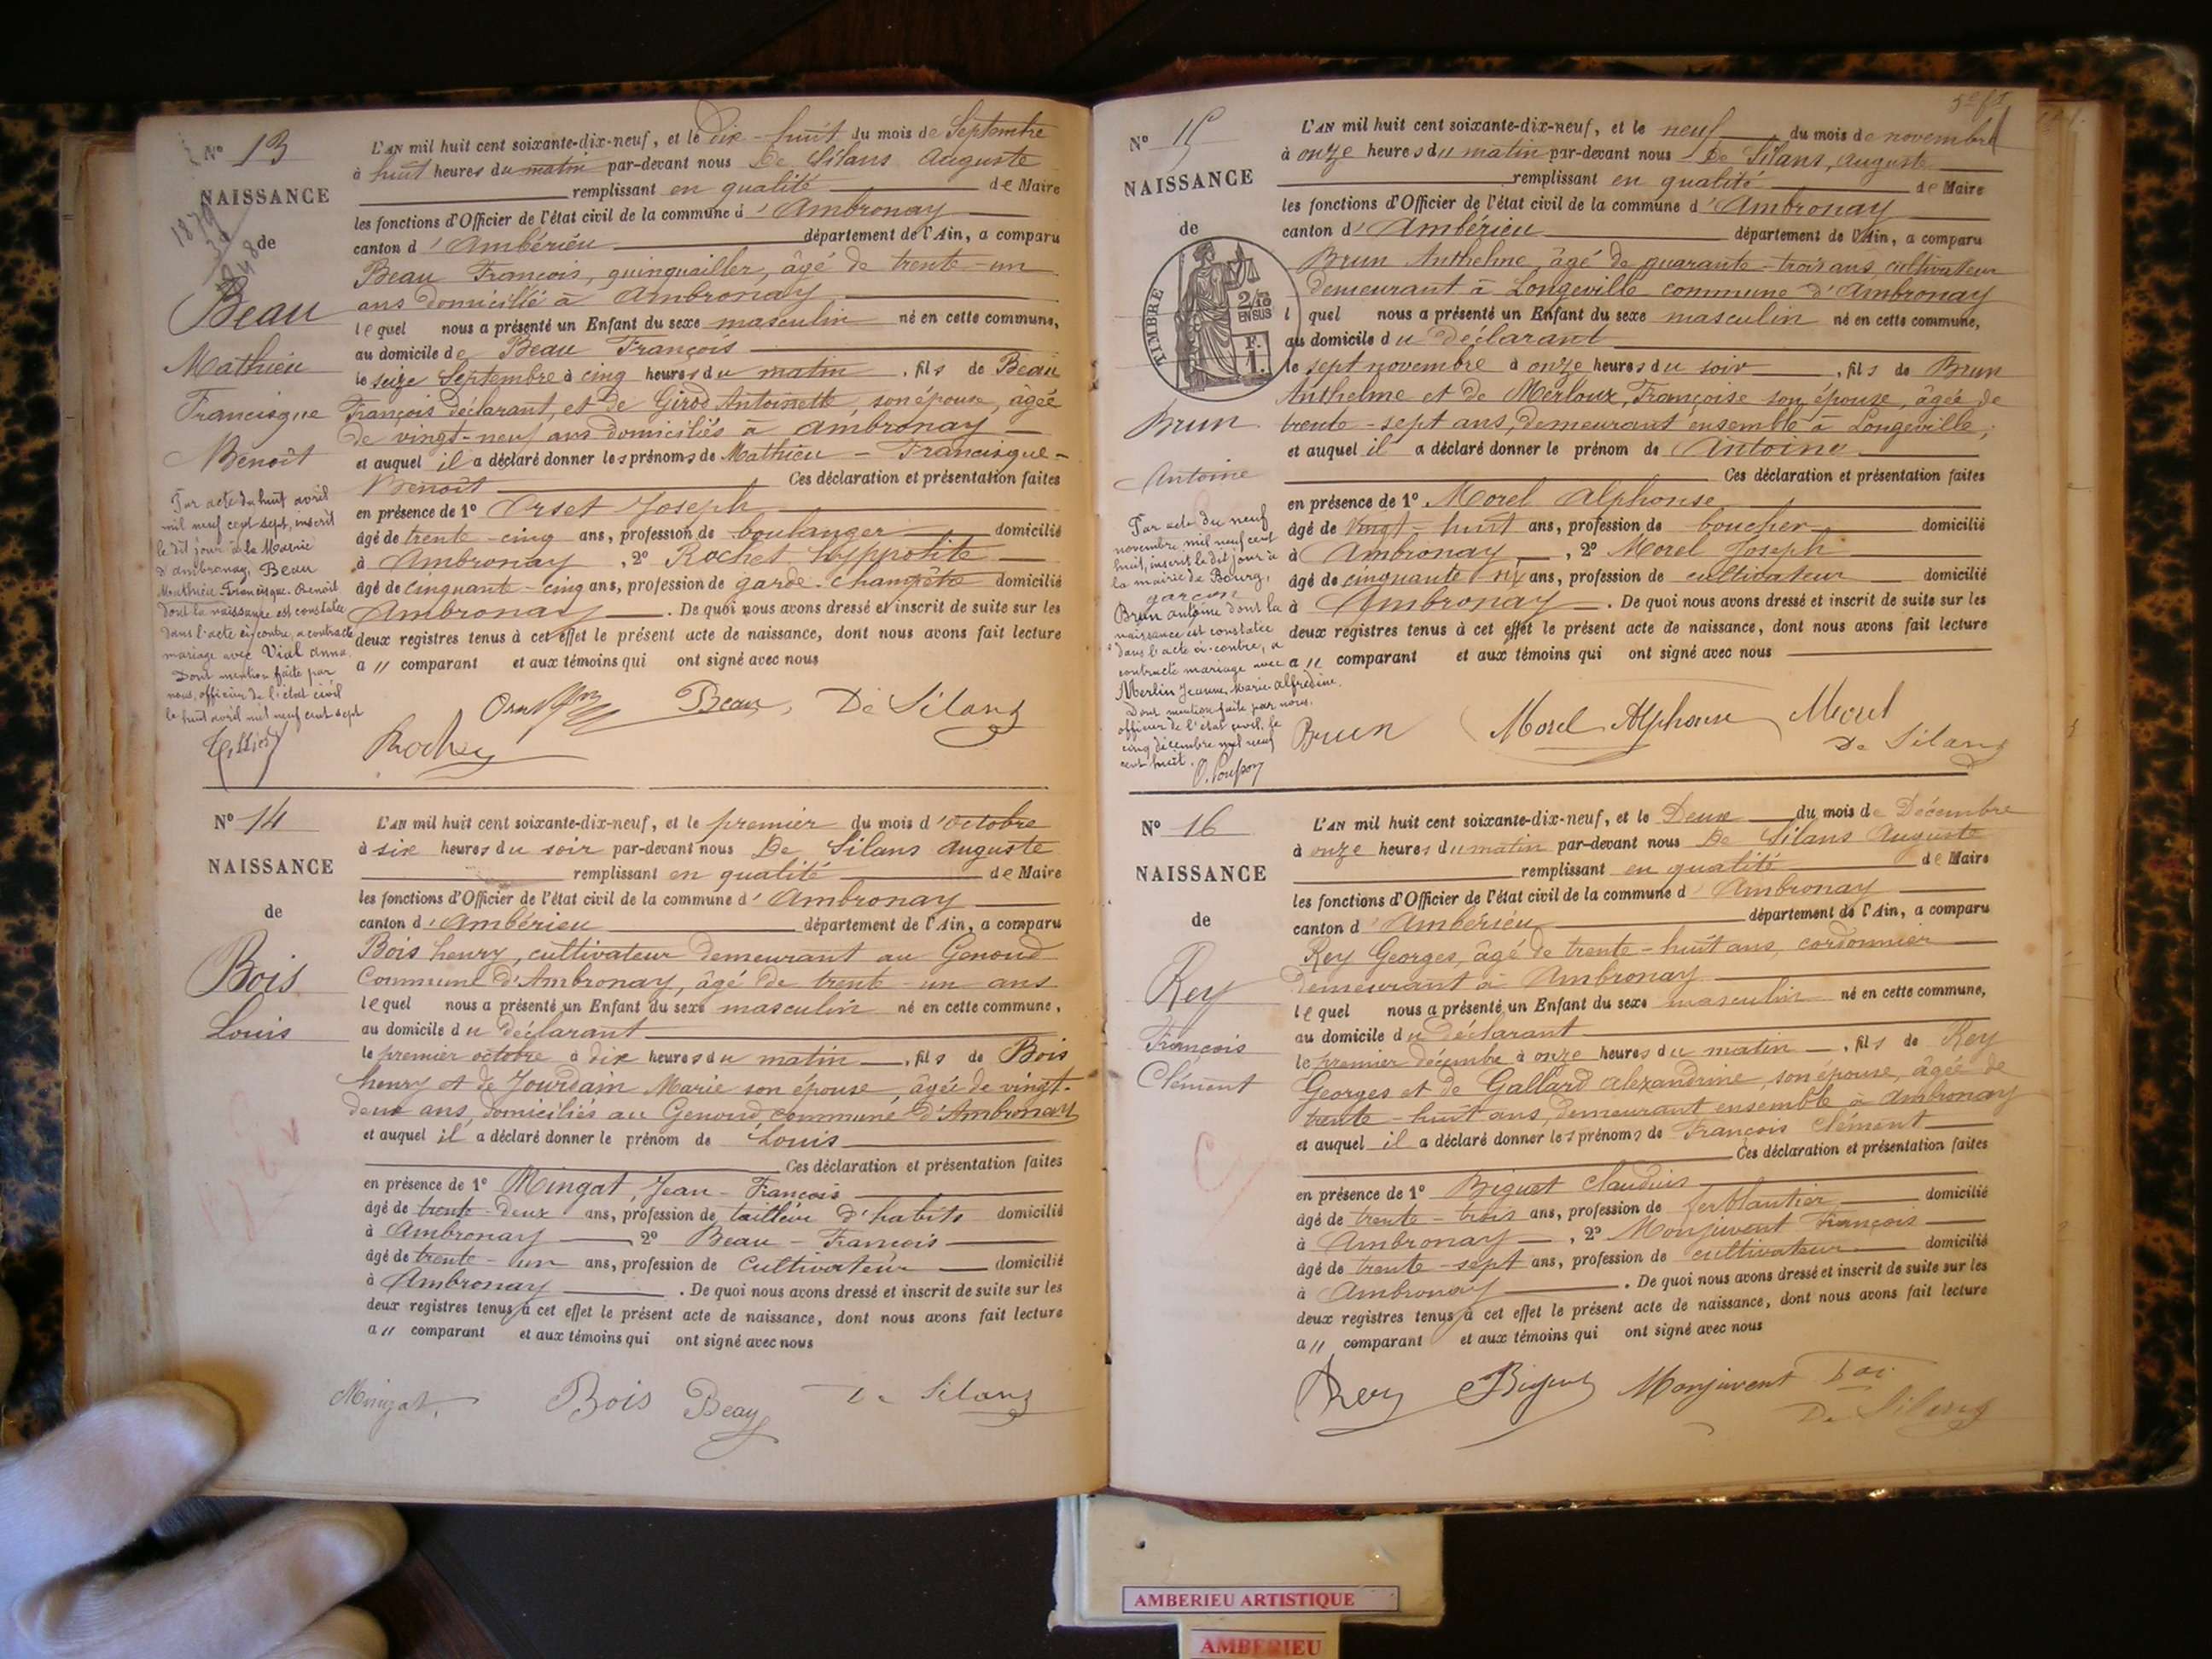 Nº 13
NAISSANCE
de
Beau
Mathieu
Francisque
Benoît
Par acte du huit avril
mil neuf cent sept, inscrit
le dit jour à la Mairie
d'Ambronay, Beau
Mathieu-Francisque-Benoît
dont la naissance est constatée
dans l'acte ci-contre, a contracté
mariage avec Vial Anna.
Dont mention faite par
nous, officier de l'état civil
le huit avril mil neuf cent sept
L'AN mil huit cent soixante-dix-neuf, et le dix-huit du mois de Septembre
à huit heures du matin par-devant nous De Silans Auguste
remplissant en qualité de Maire
les fonctions d'Officier de l'état civil de la commune d'Ambronay
canton d'Ambérieu département de l'Ain, a comparu
Beau François, quinquailler, âgé de trente-un
ans domicilié à Ambronay
lequel nous a présenté un Enfant du sexe masculin né en cette commune,
au domicile de Beau François
le seize Septembre à cinq heures du matin, fils de Beau
François déclarant, et de Girod Antoinette, son épouse, âgée
de vingt-neuf ans domiciliés à Ambronay
et auquel il a déclaré donner les prénoms de Mathieu-Francisque-
Benoît Ces déclaration et présentation faites
en présence de 1º Orset Joseph
âgé de trente-cinq ans, profession de boulanger domicilié
à Ambronay, 2º Rochet Hyppolite
âgé de cinquante-cinq ans, profession de garde-champêtre domicilié
Ambronay. De quoi nous avons dressé et inscrit de suite sur les
deux registres tenus à cet effet le présent acte de naissance, dont nous avons fait lecture
a " comparant et aux témoins qui ont signé avec nous
Beau, De Silans
Nº 14
NAISSANCE
de
Bois
Louis
L'AN mil huit cent soixante-dix-neuf, et le premier du mois d'octobre
à six heures du soir par-devant nous De Silans Auguste
remplissant en qualité de Maire
les fonctions d'Officier de l'état civil de la commune d'Ambronay
canton d'Ambérieu département de l'Ain, a comparu
Bois henry, cultivateur demeurant au Genoud
Commune d'Ambronay, âgé de trente-un ans
lequel nous a présenté un Enfant du sexe masculin né en cette commune,
au domicile du déclarant
le premier octobre à dix heures du matin, fils de Bois
henry et de Jourdain Marie son épouse, âgée de vingt-
deux ans, domiciliés au Genoud commune d'Ambronay
et auquel il a déclaré donner le prénom de Louis
Ces déclaration et présentation faites
en présence de 1º Mingat, Jean-François
âgé de trente-deux ans, profession de tailleur d'habits domicilié
à Ambronay 2º Beau-François
âgé de trente-un ans, profession de cultivateur domicilié
à Ambronay. De quoi nous avons dressé et inscrit de suite sur les
deux registres tenus à cet effet le présent acte de naissance, dont nous avons fait lecture
a " comparant et aux témoins qui ont signé avec nous
Mingat Bois Beau De Silans
Nº 15
NAISSANCE
de
TIMBRE
2/10
EN SUS
F.
1.
Brun
Antoine
Par acte du neuf
novembre mil neuf cent
huit, inscrit le dit jour à
la mairie de Bourg,
garçon
Brun Antoine dont la
naissance est constatée
dans l'acte ci-contre, a
contracté mariage avec
Merlin Jeanne-Marie-Alfredine.
Dont mention faite par nous,
officier de l'état civil, le
cinq décembre mil neuf
cent huit.
L'AN mil huit cent soixante-dix-neuf, et le neuf du mois de novembre
à onze heures du matin par-devant nous De Silans, Auguste
remplissant en qualité de Maire
les fonctions d'Officier de l'état civil de la commune d'Ambronay
canton d'Ambérieu département de l'Ain, a comparu
Brun Anthelme, âgé de quarante-trois ans, cultivateur
demeurant à Longeville commune d'Ambronay
l quel nous a présenté un Enfant du sexe masculin né en cette commune,
au domicile du déclarant
le sept novembre à onze heures du soir, fils de Brun
Anthelme et de Merloux, Françoise son épouse, âgée de
trente-sept ans, demeurant ensemble à Longeville;
et auquel il a déclaré donner le prénom de Antoine
Ces déclaration et présentation faites
en présence de 1º Morel Alphonse
âgé de vingt-huit ans, profession de boucher domicilié
à Ambronay, 2º Morel Joseph
âgé de cinquante-six ans, profession de cultivateur domicilié
à Ambronay. De quoi nous avons dressé et inscrit de suite sur les
deux registres tenus à cet effet le présent acte de naissance, dont nous avons fait lecture
a " comparant et aux témoins qui ont signé avec nous
Brun Morel Alphonse Morel
De Silans
Nº 16
NAISSANCE
de
Rey
François
Clément
L'AN mil huit cent soixante-dix-neuf, et le Deux du mois de Décembre
à onze heures du matin par-devant nous De Silans Auguste
remplissant en qualité de Maire
les fonctions d'Officier de l'état civil de la commune d'Ambronay
canton d'Ambérieu département de l'Ain, a comparu
Rey Georges, âgé de trente-huit ans, cordonnier
demeurant à Ambronay
lequel nous a présenté un Enfant du sexe masculin né en cette commune,
au domicile du Déclarant
le premier décembre à onze heures du matin, fils de Rey
Georges et de Gallard Alexandrine, son épouse, âgée de
trente-huit ans, demeurant ensemble à Ambronay
et auquel il a déclaré donner les prénoms de François Clément
Ces déclaration et présentation faites
en présence de 1º Biguet Claudius
âgé de trente-trois ans, profession de ferblantier domicilié
à Ambronay, 2º Monjuvent François
âgé de trente-sept ans, profession de cultivateur domicilié
à Ambronay. De quoi nous avons dressé et inscrit de suite sur les
deux registres tenus à cet effet le présent acte de naissance, dont nous avons fait lecture
a " comparant et aux témoins qui ont signé avec nous
Rey Biguet Monjuvent
De Silans
AMBERIEU ARTISTIQUE
AMBERIEU